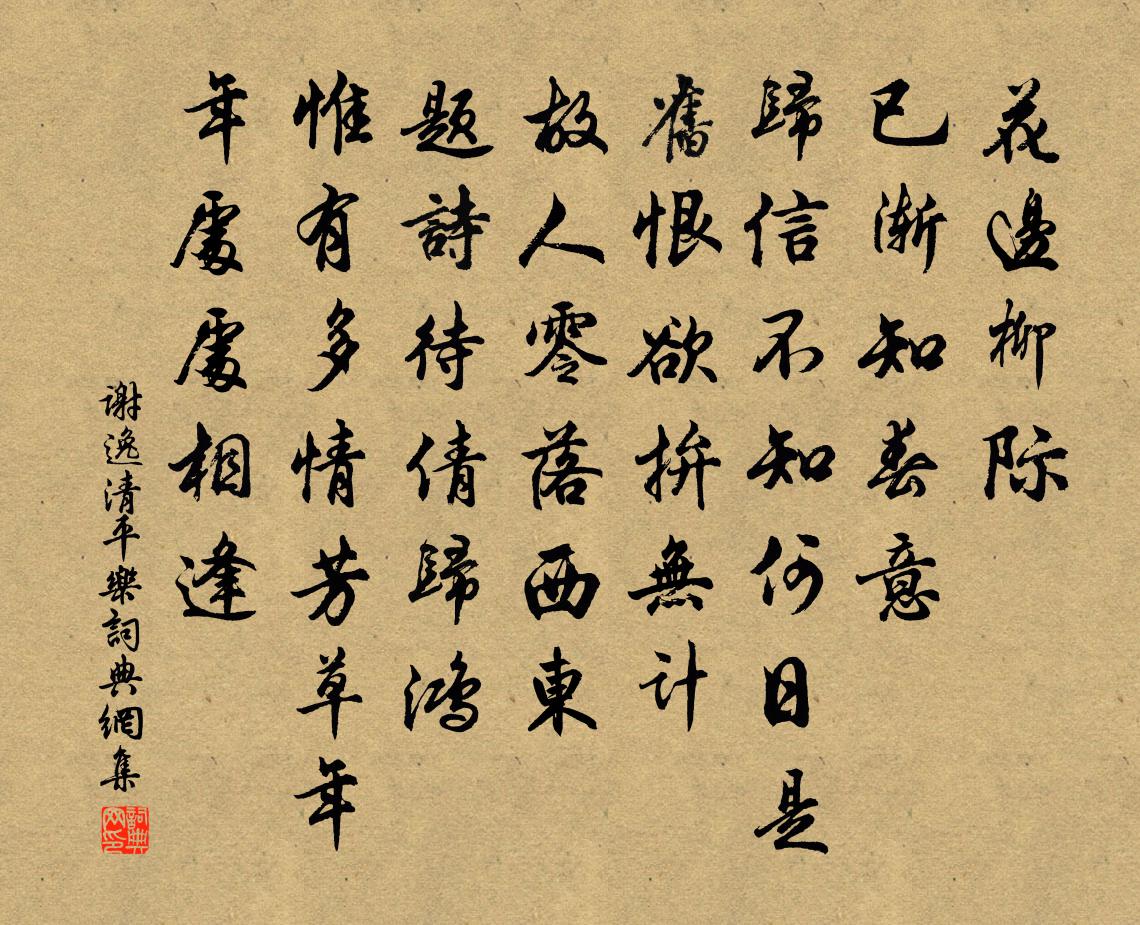 花邊柳际
已渐知春意
歸信不知何日是
舊恨欲拚無计
故人零落西東
题詩待倩歸鸿
惟有多情芳草年
年處處相逢
谢逸清平樂詞典網集
詞典网印